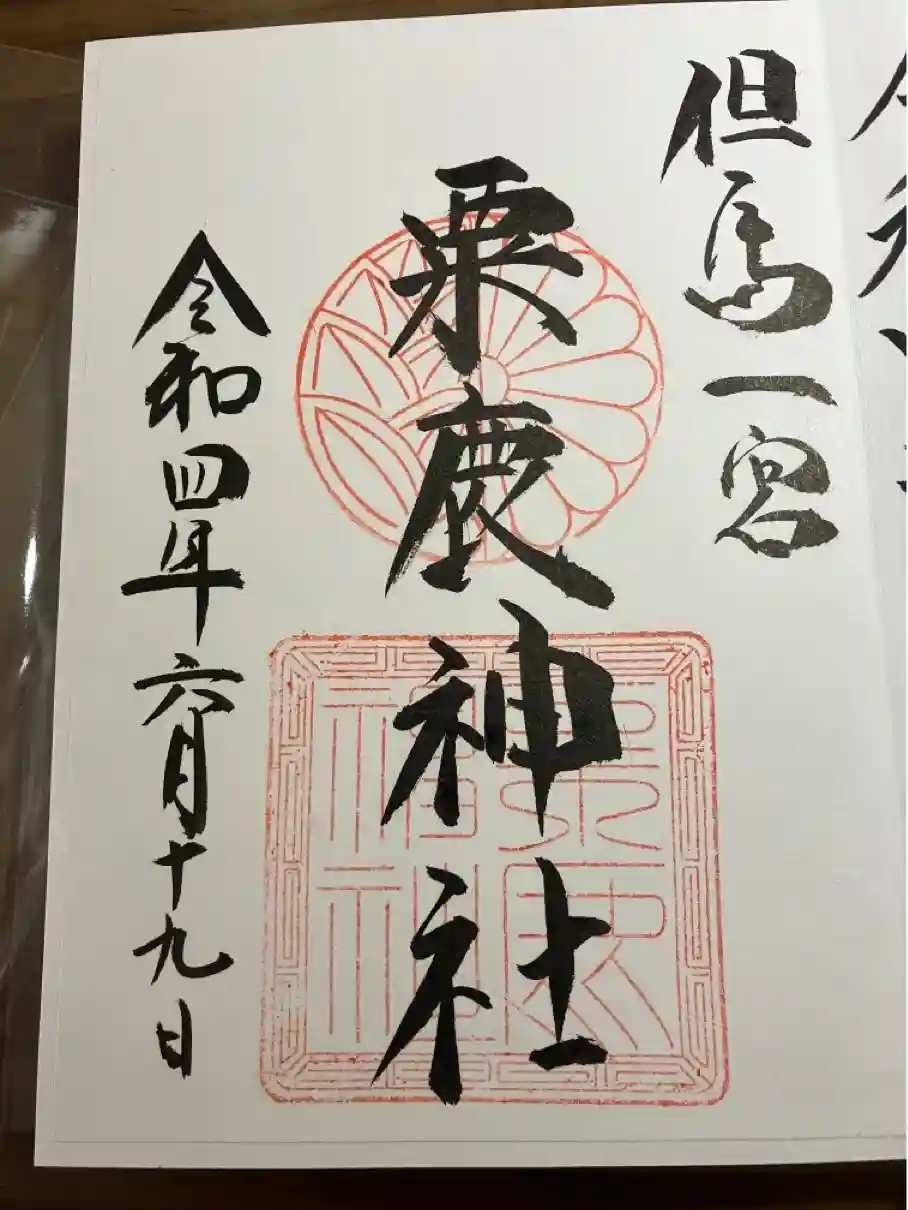 但馬一宮
粟鹿神社
令和四年六月十九日
粟鹿
神社